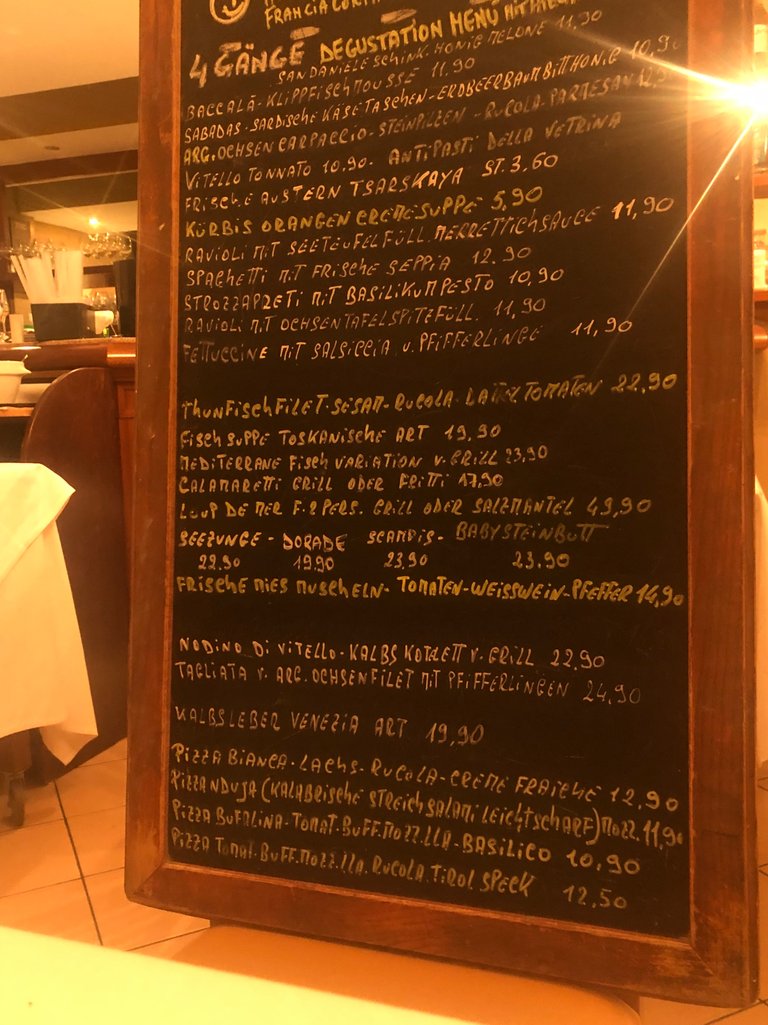 FRANCIACORTA
4 GÄNGE DEGUSTATION MENÜ MIT
SAN DANIELE SCHINK. HONIG MELONE 11,90
BACCALÀ - KLIPPFISCHMOUSSE 11.90
SABADAS - SARDISCHE KÄSETASCHEN - ERDBEERBAUMBITTHONIG 10,90
ARG. OCHSEN CARPACCIO - STEINPILZEN - RUCOLA - PARMESAN 12,90
VITELLO TONNATO 10.90 - ANTIPASTI DELLA VETRINA
FRISCHE AUSTERN TSARSKAYA ST. 3,60
KÜRBIS ORANGEN CREMESUPPE 5,90
RAVIOLI MIT SEETEUFELFÜLL. MERRETTICHSAUCE 11,90
SPAGHETTI MIT FRISCHE SEPPIA 12.90
STROZZAPRETI MIT BASILIKUMPESTO 10,90
RAVIOLI MIT OCHSENTAFELSPITZFÜLL. 11,90
FETTUCCINE MIT SALSICCIA U. PFIFFERLINGE 11,90
THUNFISCHFILET - SESAM - RUCOLA - TOMATEN 22,90
FISCHSUPPE TOSKANISCHE ART 19,90
MEDITERRANE FISCH VARIATION V. GRILL 23,90
CALAMARETTI GRILL ODER FRITTI 17,90
LOUP DE MER F. 2 PERS. GRILL ODER SALZMANTEL 49,90
SEEZUNGE - DORADE SCAMPIS - BABYSTEINBUTT
22.90 19.90 23,90 23.90
FRISCHE MIES MUSCHELN - TOMATEN - WEISSWEIN - PFEFFER 14,90
NODINO DI VITELLO - KALBS KOTLETT V. GRILL 22,90
TAGLIATA V. ARG. OCHSENFILET MIT PFIFFERLINGEN 24,90
KALBSLEBER VENEZIA ART 19,90
PIZZA BIANCA - LACHS - RUCOLA - CREME FRAICHE 12,90
PIZZA NDUJA (KALABRISCHE STREICHSALAMI LEICHTSCHARF) MOZZ. 11,90
PIZZA BUFALINA - TOMAT. BUFF. MOZZ.LLA - BASILICO 10,90
PIZZA TOMAT. BUFF. MOZZ.LLA. RUCOLA. TIROL SPECK 12,50